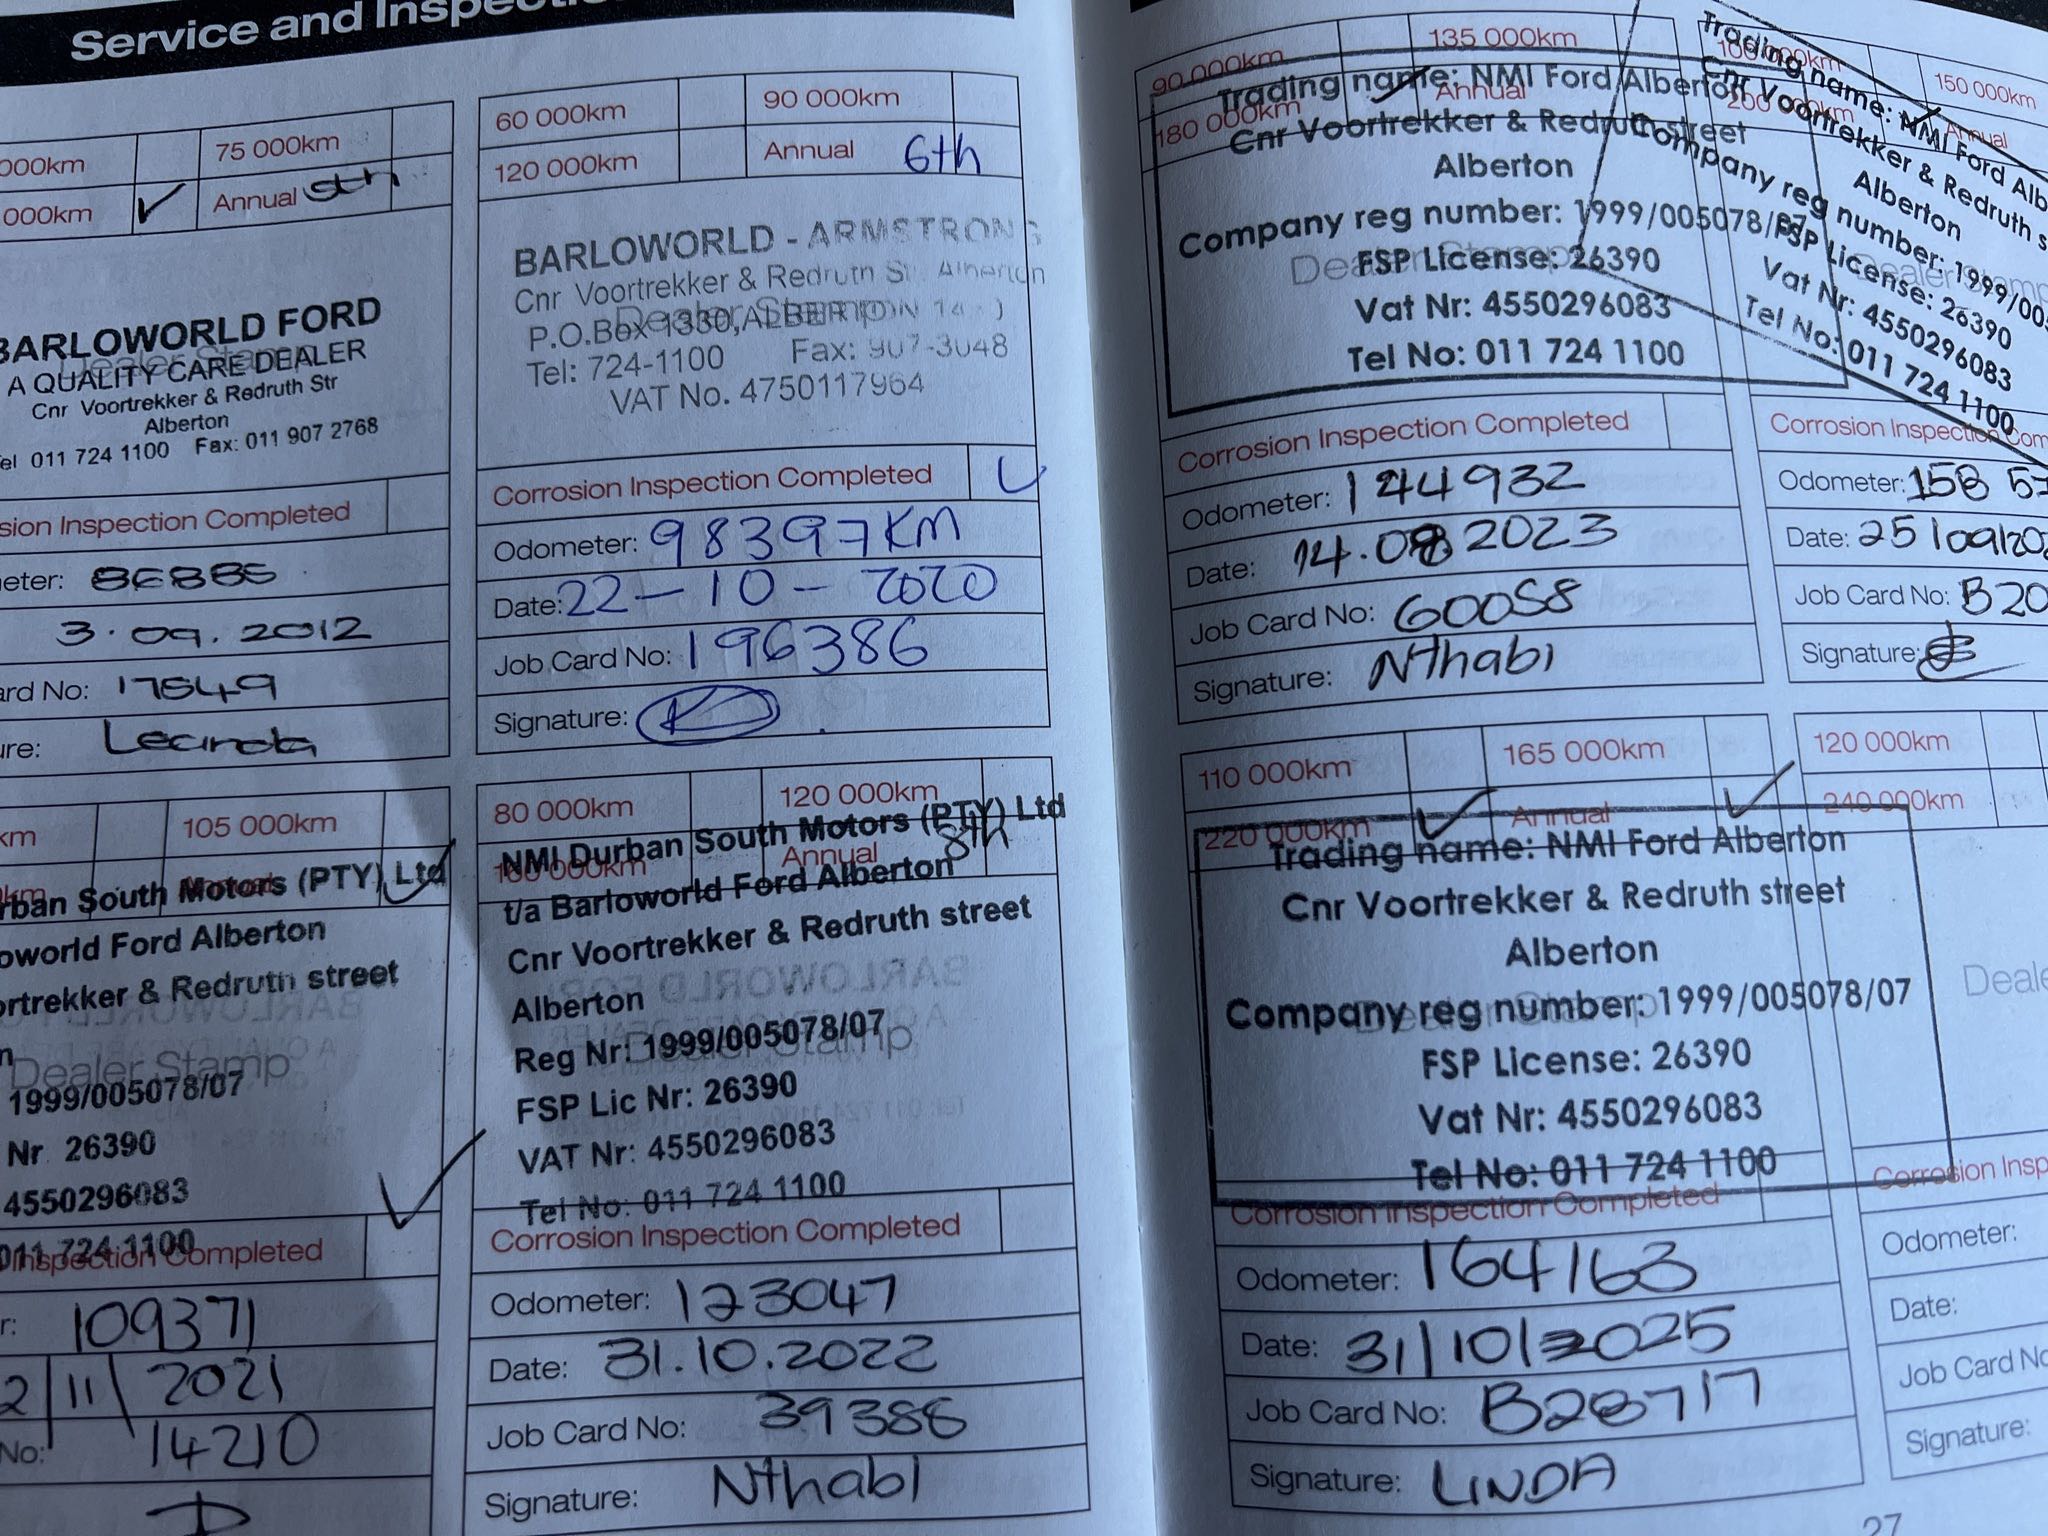 Service and Inspecti
000km
75 000km
000km ✓
Annual 5th
BARLOWORLD FORD
A QUALITY CARE DEALER
Cnr Voortrekker & Redruth Str
Alberton
el 011 724 1100 Fax: 011 907 2768
Dealer Stamp
sion Inspection Completed
eter:
3.09.2012
ard No: 17549
ure:
60 000km
90 000km
120 000km
Annual 6th
BARLOWORLD - ARMSTRONG
Cnr Voortrekker & Redruth St. Alberton
P.O.Box 1330, ALBERTON 14
Tel: 724-1100 Fax: 907-3048
VAT No. 4750117964
Dealer Stamp
Corrosion Inspection Completed ✓
Odometer: 98397KM
Date: 22-10-2020
Job Card No: 196386
Signature:
km
105 000km
0km
Annual
rban South Motors (PTY) Ltd
oworld Ford Alberton
ortrekker & Redruth street
n
Dealer Stamp
1999/005078/07
Nr 26390
4550296083
011 724 1100
Inspection Completed ✓
r: 109371
2/11/2021
No: 14210
80 000km
120 000km
160 000km
Annual 8th
NMI Durban South Motors (PTY) Ltd
t/a Barloworld Ford Alberton
Cnr Voortrekker & Redruth street
Alberton
Reg Nr: 1999/005078/07
Dealer Stamp
FSP Lic Nr: 26390
VAT Nr: 4550296083
Tel No: 011 724 1100
Corrosion Inspection Completed
Odometer: 123047
Date: 31.10.2022
Job Card No: 39386
Signature: Nthabi
90 000km
135 000km
180 000km
Annual
Trading name: NMI Ford Alberton
Cnr Voortrekker & Redruth street
Alberton
Company reg number: 1999/005078/07
FSP License: 26390
Dealer Stamp
Vat Nr: 4550296083
Tel No: 011 724 1100
Corrosion Inspection Completed
Odometer: 144932
Date: 14.08 2023
Job Card No: 60058
Signature: Nthabi
100 000km
150 000km
200 000km
Annual
Trading name: NMI Ford Alb
Cnr Voortrekker & Redruth s
Alberton
Company reg number: 1999/00
FSP License: 26390
Dealer Stamp
Vat Nr: 4550296083
Tel No: 011 724 1100
Corrosion Inspection Com
Odometer: 158 5
Date: 25/09/20
Job Card No: B20
Signature:
110 000km
165 000km
220 000km ✓
Annual ✓
Trading name: NMI Ford Alberton
Cnr Voortrekker & Redruth street
Alberton
Company reg number: 1999/005078/07
Dealer Stamp
FSP License: 26390
Vat Nr: 4550296083
Tel No: 011 724 1100
Corrosion Inspection Completed
Odometer: 164163
Date: 31/10/2025
Job Card No: B28717
Signature: LINDA
120 000km
240 000km
Deale
Corrosion Insp
Odometer:
Date:
Job Card No
Signature:
27